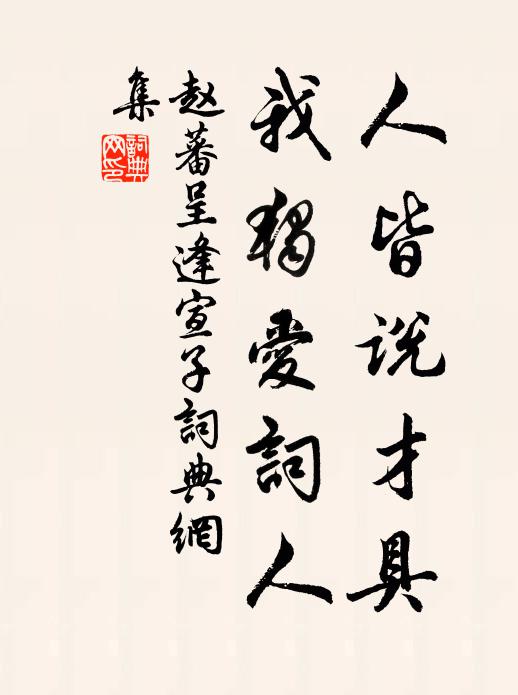 人皆说才具
我獨愛詞人
赵蕃呈逢宣子詞典網
集
詞典
网印